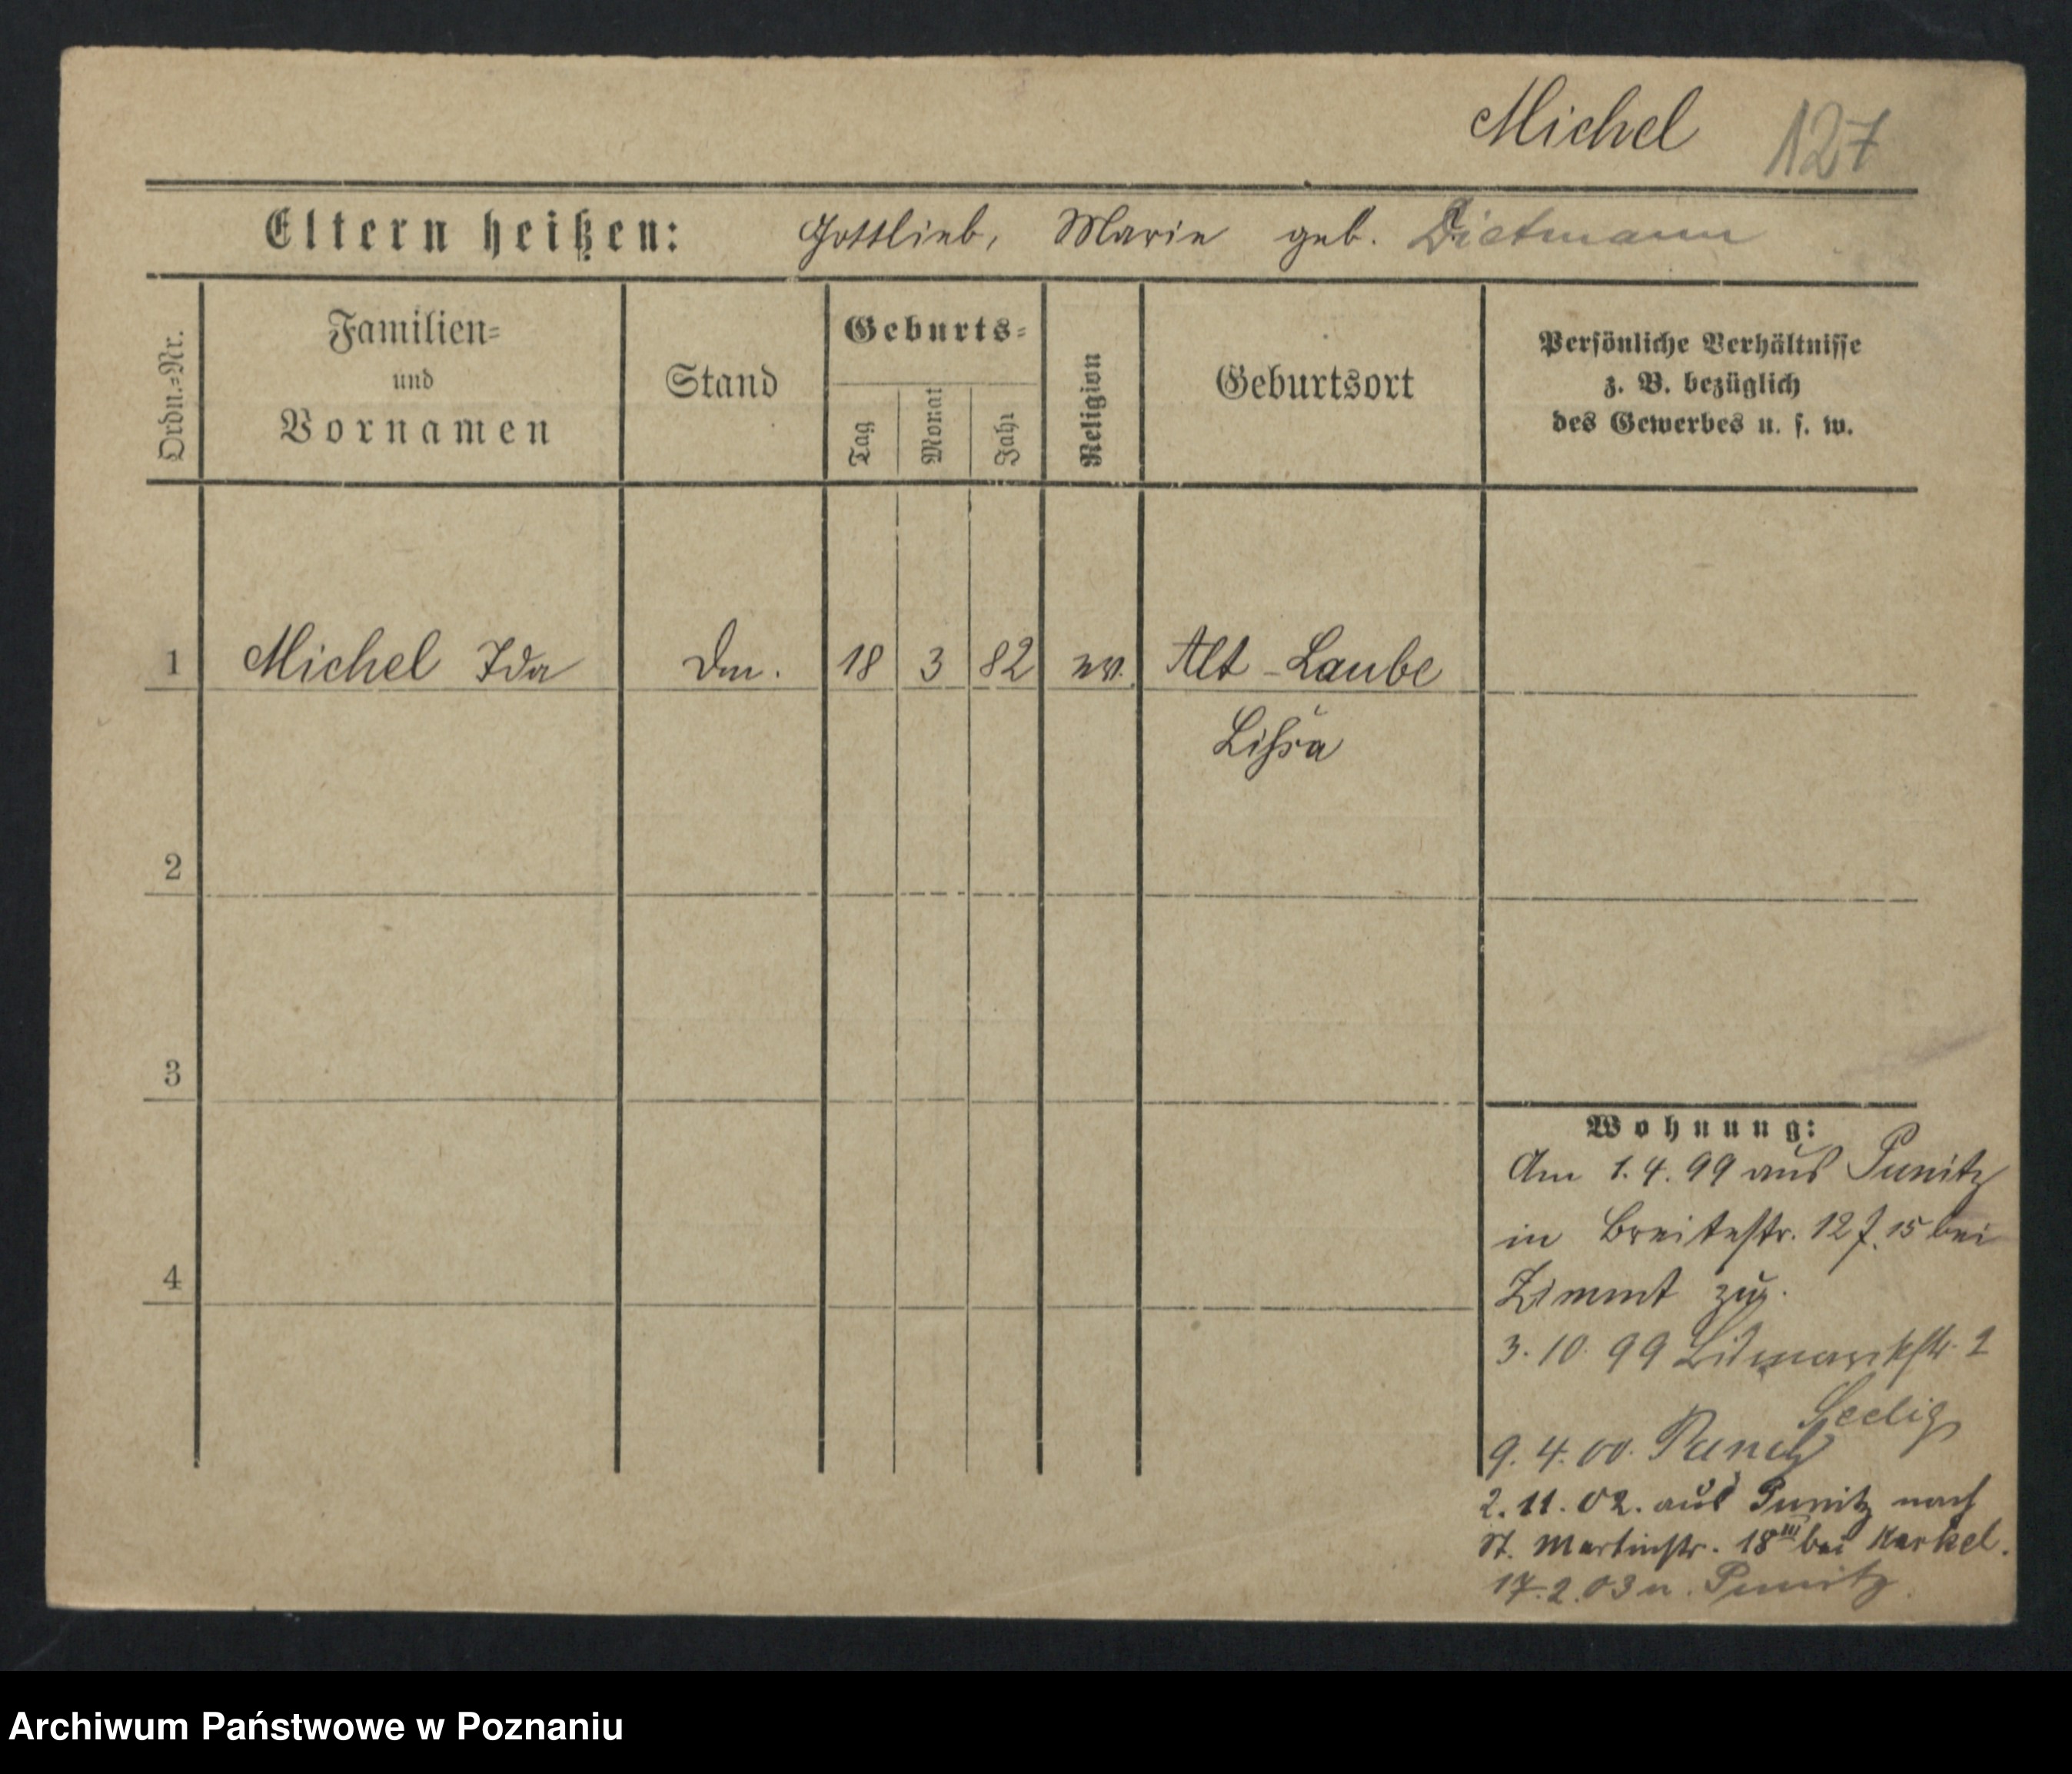 Michel 127
Eltern heißen: Gottlieb, Marie geb. Dietmann
Ordn.=Nr.
Familien=
und
Vornamen
Stand
Geburts=
Tag
Monat
Jahr
Religion
Geburtsort
Persönliche Verhältnisse
z. B. bezüglich
des Gewerbes u. s. w.
1 Michel Ida Dm. 18 3 82 ev. Alt-Laube
Lissa
2
3
4
Wohnung:
Am 1.4.99 aus Punitz
in Breitestr. 12 15 bei
Zimmt zug.
3.10.99 Bismarckstr. 2
Seelig
9.4.00. Punitz
2.11.02. aus Punitz nach
St. Martinstr. 18 III bei Karkel.
17.2.03 n. Punitz.
Archiwum Państwowe w Poznaniu